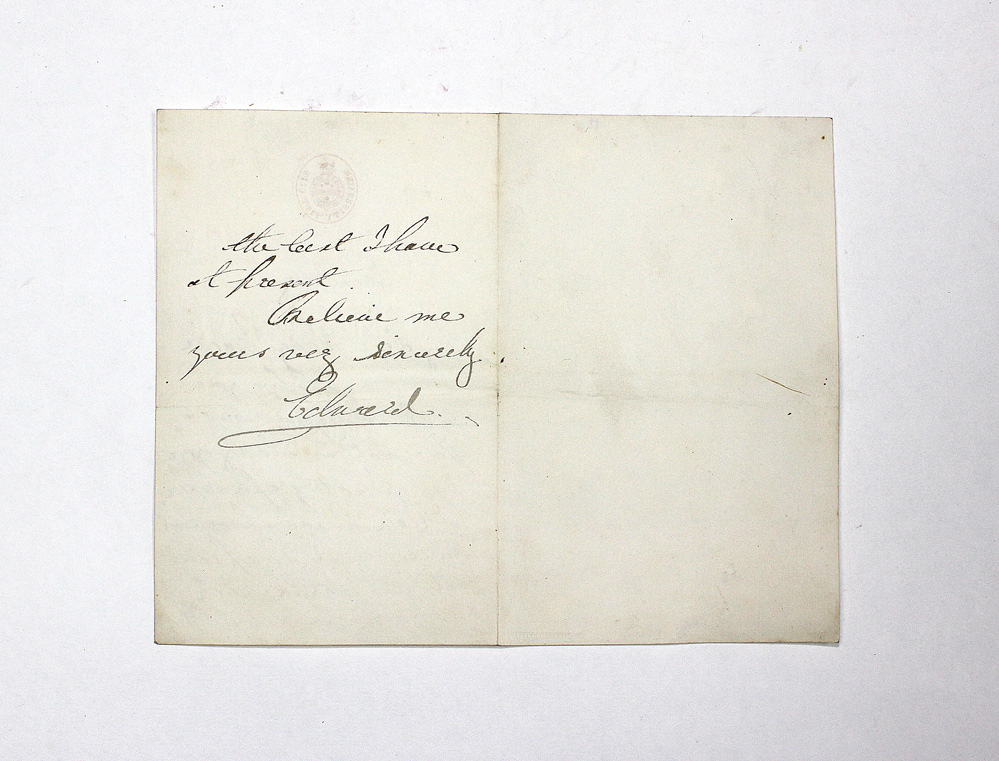 the best I have
at present.
Believe me
yours very sincerely.
Edward.